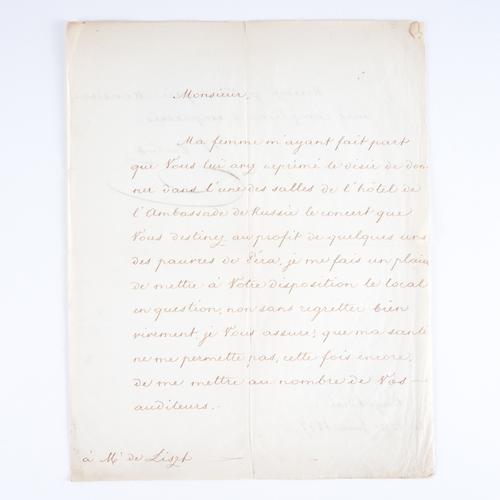 Monsieur,
Ma femme m'ayant fait part
que Vous lui avez exprimé le désir de don-
ner dans l'une des salles de l'hôtel de
l'Ambassade de Russie le concert que
Vous destinez au profit de quelques uns
des pauvres de Péra, je me fais un plaisir
de mettre à Votre disposition le local
en question, non sans regretter bien
vivement, je Vous assure, que ma santé
ne me permette pas, cette fois encore,
de me mettre au nombre de Vos
auditeurs.
à Mr de Liszt